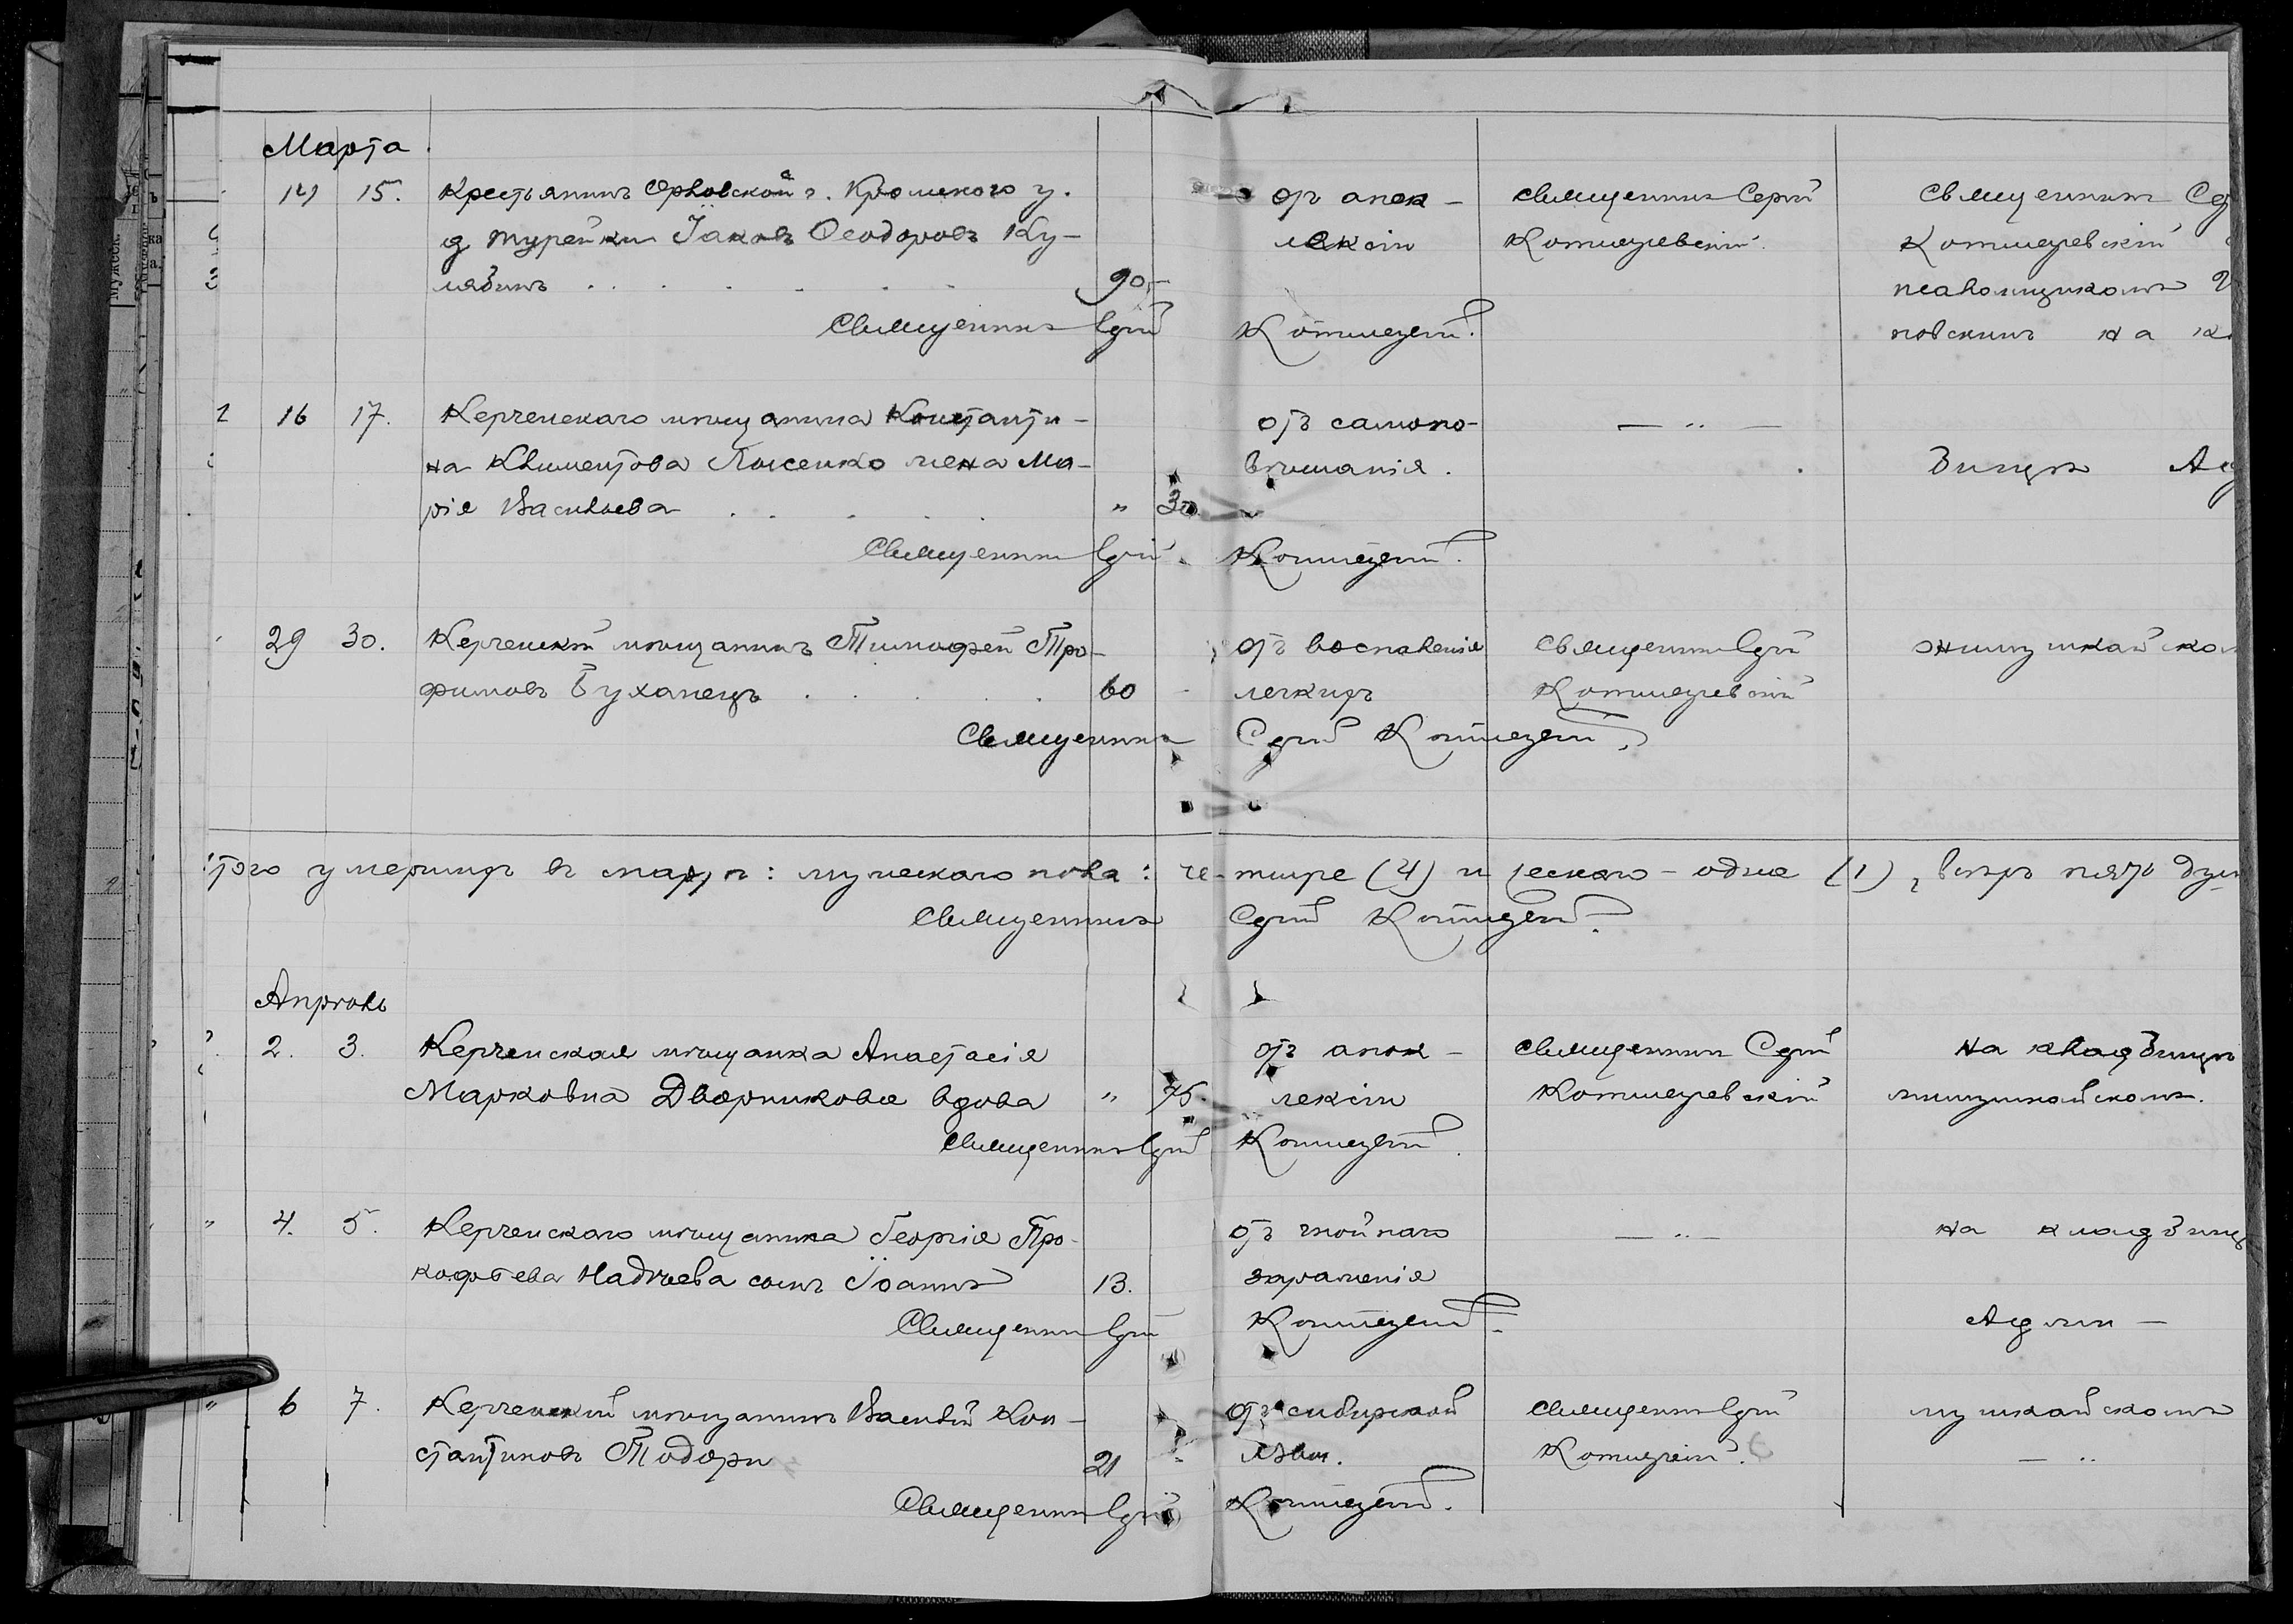 Марта.
14 15. Крестьянинъ Орловской г. Кромскаго у.
д. Іаковъ Ѳеодоровъ Ку-
лябинъ 90
отъ апоп-
лексіи
Священникъ Сергій
Котляревскій.
Священникъ Се
Котляревскій
псаломщикомъ
повскимъ на к
Священникъ Сергій Котляревскій.
1 16 17. Керченскаго мѣщанина Константи-
на Климентова Лысенко жена Ма-
рія Васильева " 30
отъ самопо-
вѣшанія.
— " —
бищѣ Ад
Священникъ Сергій Котляревскій.
29 30. Керченскій мѣщанинъ Тимофей Тро-
фимовъ Буханецъ 60 -
отъ воспаленія
легкихъ
Священникъ Сергій
Котляревскій
Священникъ Сергій Котляревскій.
того умершихъ въ мартѣ: мужескаго пола: че-тыре (4) и женскаго - одна (1), всѣхъ пять душ
Священникъ Сергій Котляревскій.
Апрѣль
2. 3. Керченская мѣщанка Анастасія
Марковна Дворникова вдова " 75.
отъ апоп-
лексіи
Священникъ Сергій
Котляревскій
на кладбищѣ
Священникъ Сергій Котляревскій.
" 4. 5. Керченскаго мѣщанина Георгія Про-
кофьева сынъ Іоаннъ 13.
отъ гнойнаго
зараженія
— " —
на кладбищѣ
Аджи -
Священникъ Сергій Котляревскій.
" 6 7. Керченскій мѣщанинъ Василій Кон-
стантиновъ Тодори 21 -
отъ сибирской
язвы.
Священникъ Сергій
Котляревскій.
мушкайскомъ
— "
Священникъ Сергій Котляревскій.